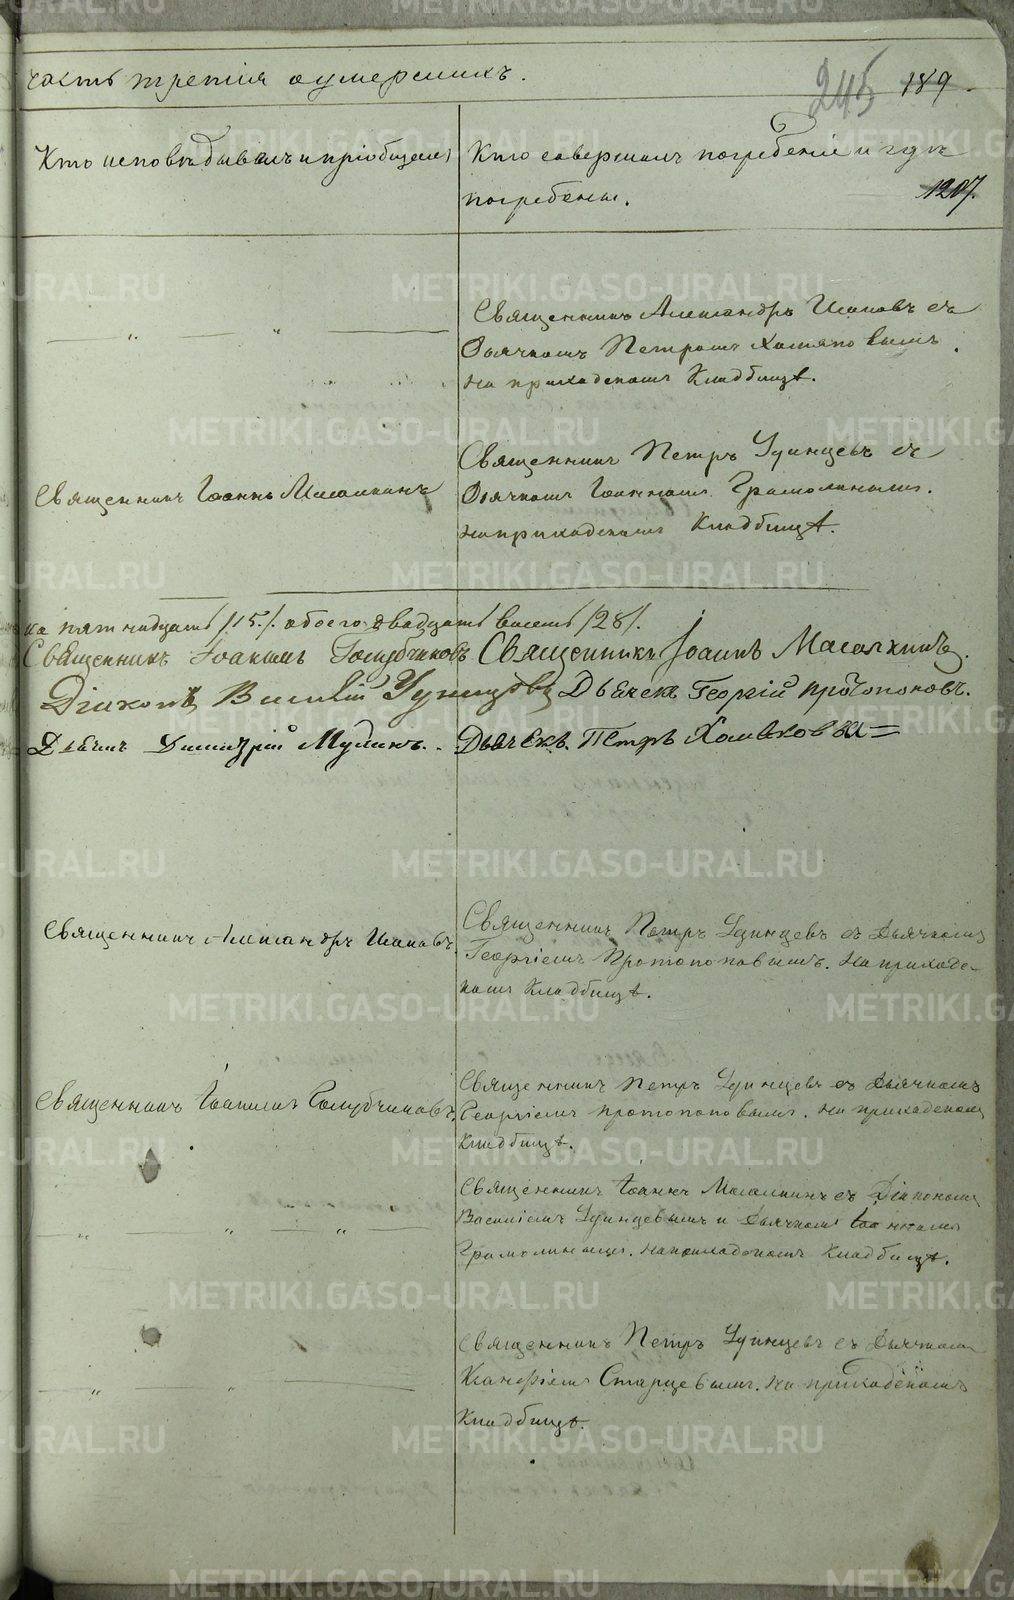 часть третія о умершихъ.
245 189.
Кто исповѣдывалъ и пріобщалъ
Кто совершалъ погребеніе и гдѣ
погребены.
1207.
Священникъ Александръ съ
Дьячкомъ Петромъ Хомяковымъ.
на приходскомъ Кладбищѣ.
Священникъ Іоаннъ Масалкинъ
Священникъ Петръ Удинцевъ съ
Дьячкомъ Іоанномъ Грамолинымъ.
на приходскомъ Кладбищѣ.
ка пятнадцать /15./ обоего двадцать восемь /28/.
Священникъ Іоакимъ Голубчиковъ Священникъ Іоаннъ Масалкинъ.
Діаконъ Василій Удинцовъ Дьячекъ Георгій Протопоповъ.
Дьячекъ Димитрій Мулинъ. Дьячекъ Петръ Хомяковъ
Священникъ Александръ
Священникъ Петръ Удинцевъ съ Дьячкомъ
Георгіемъ Протопоповымъ. на приходс-
комъ Кладбищѣ.
Священникъ Іоакимъ Голубчиковъ.
Священникъ Петръ Удинцевъ съ Дьячкомъ
Георгіемъ Протопоповымъ. на приходскомъ
Кладбищѣ.
Священникъ Іоаннъ Масалкинъ съ Діакономъ
Василіемъ Удинцевымъ и Дьячкомъ Іоанномъ
Грамолинымъ. на приходскомъ Кладбищѣ.
Священникъ Петръ Удинцевъ съ Дьячкомъ
Старцевымъ. на приходскомъ
Кладбищѣ.